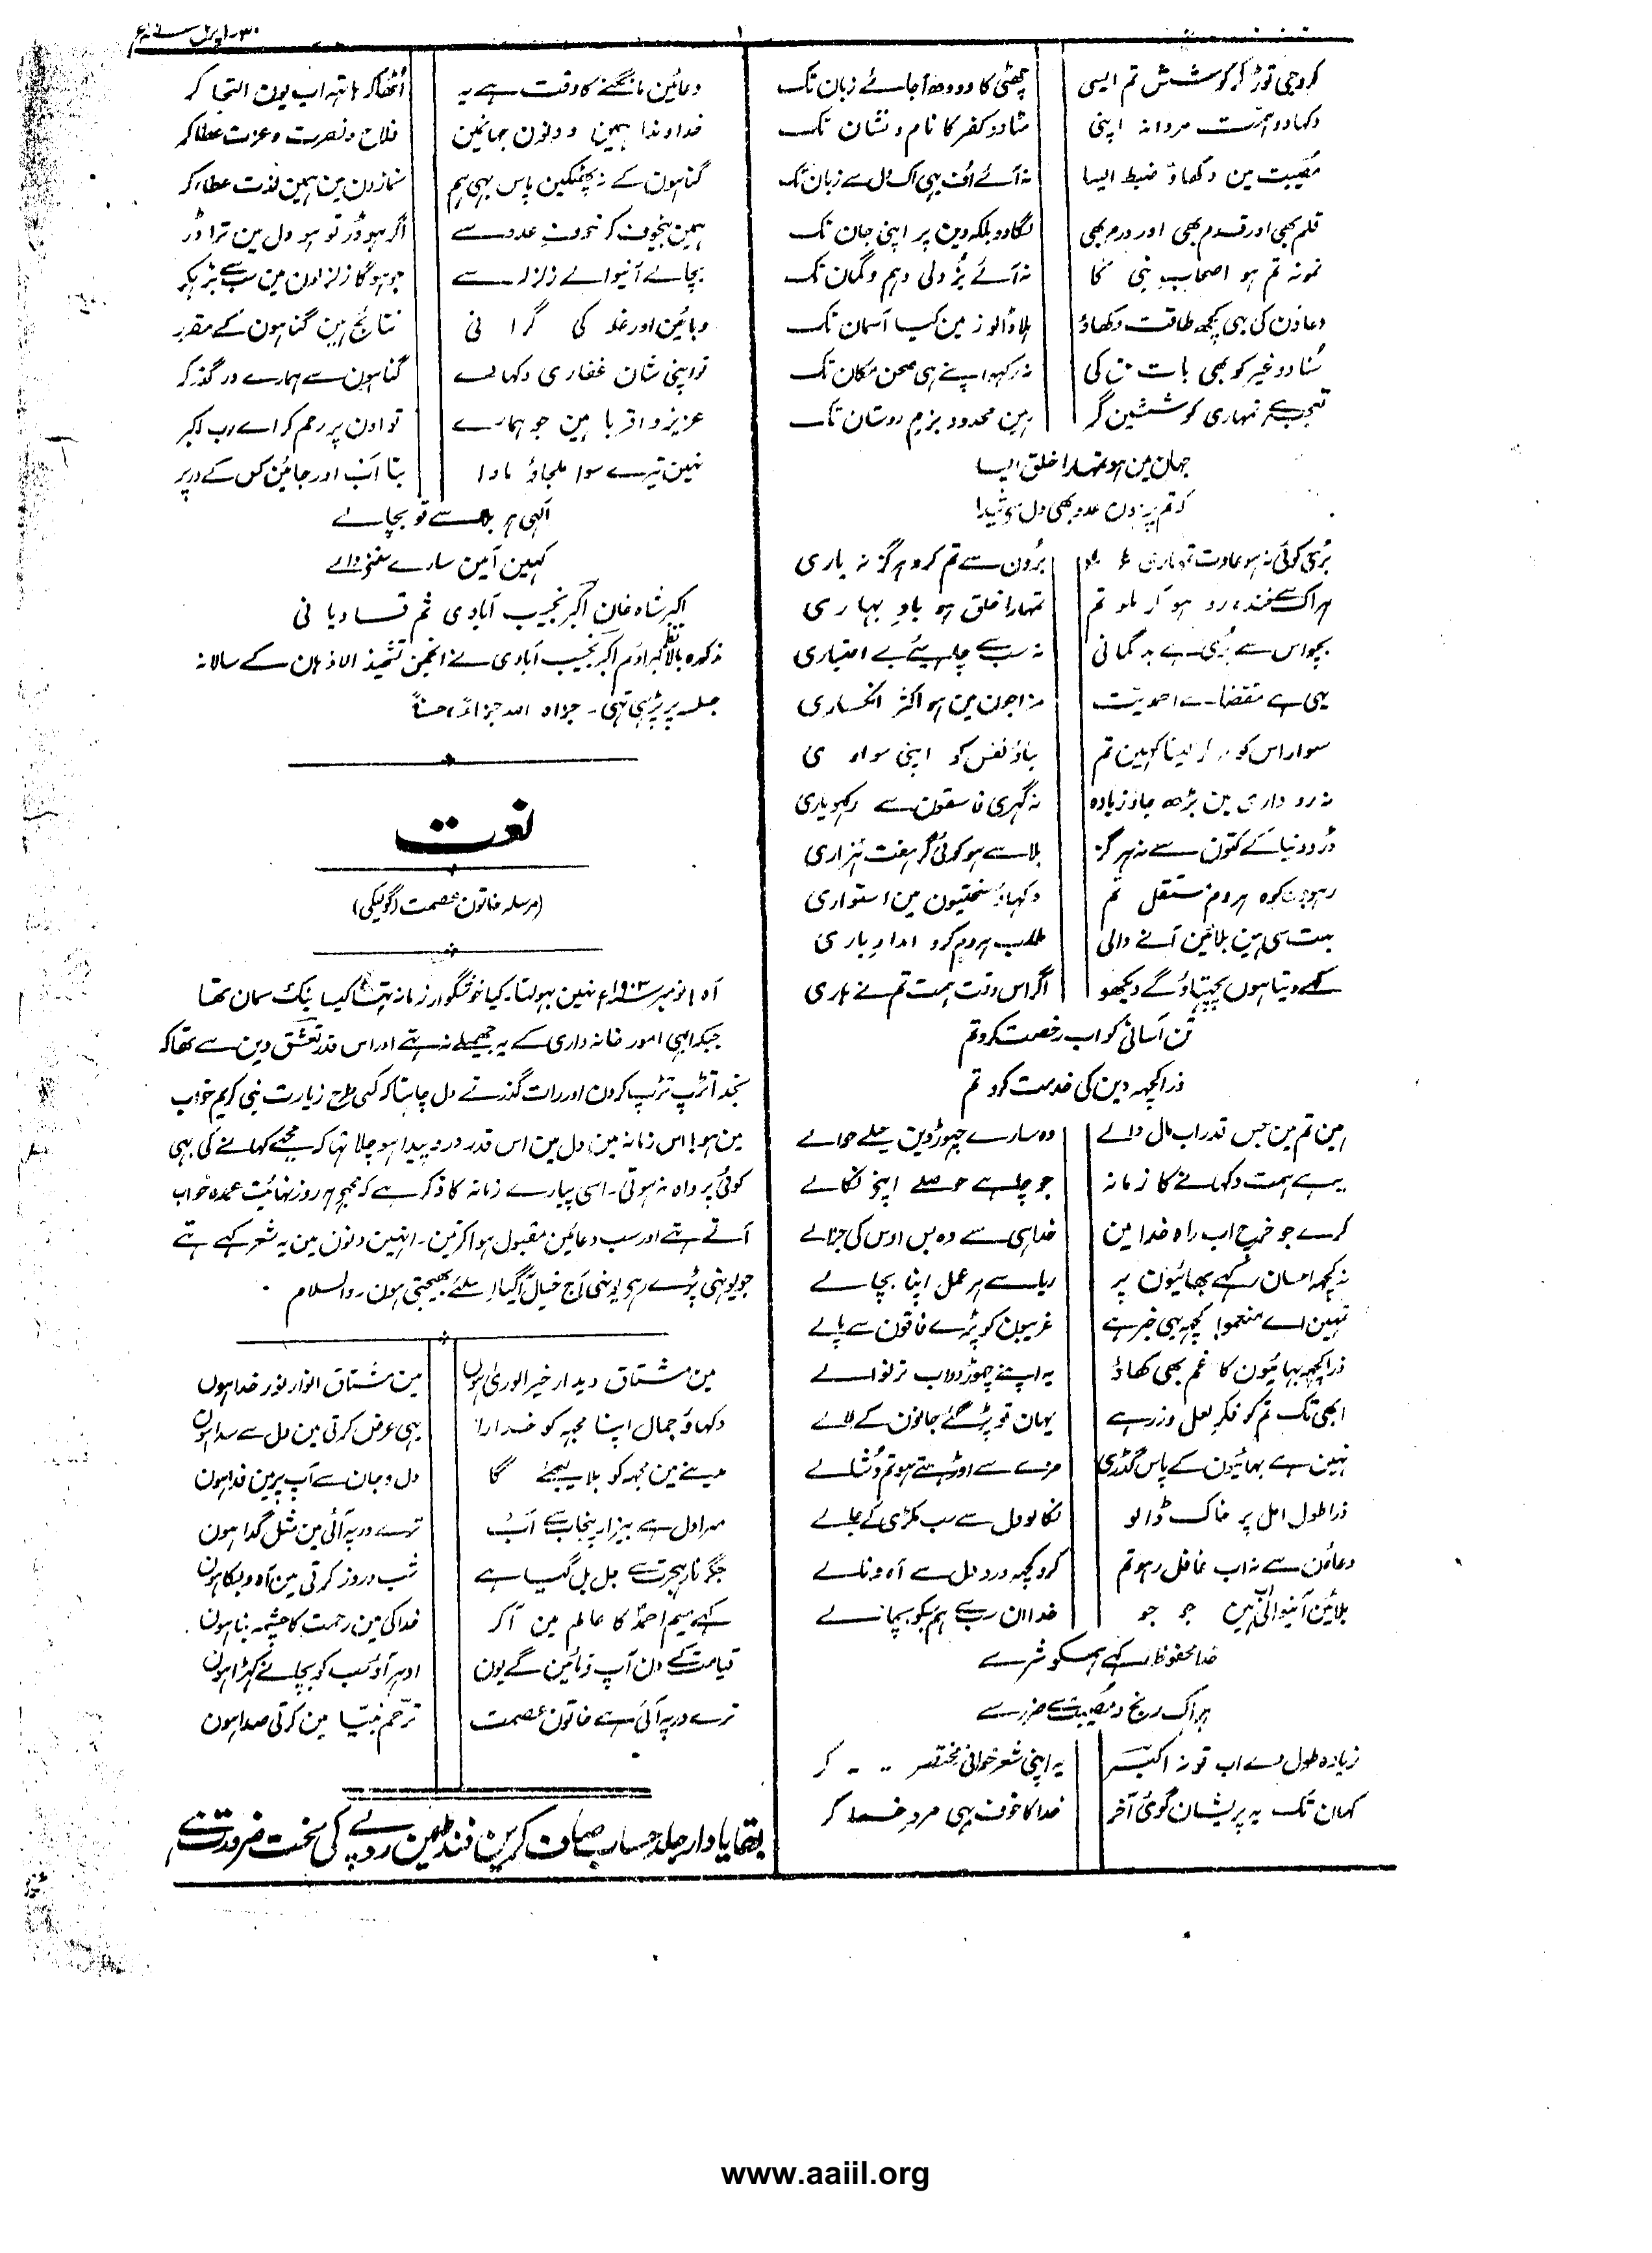 ۳۰۔اپریل
کرو جی توڑ کر کوشش تم ایسی
چھٹی کا دودھ آجائے زبان تک
دکھادو ہمت مردانہ اپنی
مٹادو کفر کا نام و نشان تک
مصیبت مین دکھاؤ ضبط ایسا
نہ آئے اُف بہی اک دل سے زبان تک
قلم بھی اور قدم بھی اور درم بھی
لگادو بلکہ دین پر اپنی جان تک
نمونہ تم ہو اصحاب نبی کا
نہ آئے بزدلی وہم و گمان تک
دعاؤن کی بہی کچھ طاقت دکھاؤ
ہلا ڈالو زمین کیا آسمان تک
سُنا دو غیر کو بھی بات حق کی
نہ رکہو اپنے ہی صحن مکان تک
تعجب ہے تمہاری کوششین گر
رہین محدود بزم دوستان تک
جہان مین ہو تمہارا خلق ایسا
کہ تم پر ہون عدو بھی دل سے شیدا
بُری کوئی نہ ہو عادت تمہاری
بُرون سے تم کرو ہرگز نہ یاری
ہر اک سے خندہ رو ہو کر ملو تم
تمہارا خلق ہو باد بہاری
بچو اس سے بُری ہے بدگمانی
نہ سب سے چاہیئے بے اعتباری
یہی ہے مقتضائے احمدیت
مزاجون مین ہو اکثر انکساری
سوار اس کو نہ کر لینا کہین تم
بناؤ نفس کو اپنی سواری
نہ رو داری مین بڑھ جاؤ زیادہ
نہ گہری فاسقون سے رکھو یاری
ڈرو دنیا کے کتون سے نہ ہرگز
بلا سے ہو کوئی گر ہفت ہزاری
رہو چون کوہ ہر دم مستقل تم
دکہاؤ سختیون مین استواری
بہت سی ہین بلائین آنے والی
طلب ہر دم کرو امداد باری
کہے دیتا ہوں پچھتاؤ گے دیکھو
اگر اس وقت ہمت تم نے ہاری
تن آسانی کو اب رخصت کرو تم
ذرا کچہہ دین کی خدمت کرو تم
ہین تم مین جس قدر اب مال والے
وہ سارے چھوڑ دین حیلے حوالے
یہ ہے ہمت دکہانے کا زمانہ
جو چاہے حوصلے اپنے نکالے
کرے جو خرچ اب راہ خدا مین
خدا ہی سے وہ بس اوس کی جزا لے
نہ کچہہ احسان رکہے بھائیون پر
ریا سے ہر عمل اپنا بچالے
تمہین اے منعمو! کچہہ بہی خبر ہے
غریبون کو پڑے فاقون سے پالے
ذرا کچہہ بہائیون کا غم بھی کھاؤ
یہ اپنے چھوڑ دو اب تر نوالے
ابھی تک تم کو فکر لعل و زر ہے
یہان تو پڑ گئے جانون کے لالے
نہین ہے بہائیون کے پاس گدڑی
مزے سے اوڑہتے ہو تم دُشالے
ذرا طول امل پر خاک ڈالو
نکالو دل سے سب مکڑی کے جالے
دعاؤن سے نہ اب غافل رہو تم
کرو کچھ درد دل سے آہ و نالے
بلائین آنیوالی ہین جو جو
خدا ان سے ہم سبکو بچا لے
خدا محفوظ رکہے ہمکو شر سے
ہر اک رنج و مصیبت سے ضرر سے
زیادہ طول دے اب تو نہ اکبر
یہ اپنی شعر خوانی مختصر کر
کہان تک یہ پریشان گوئی آخر
خدا کا خوف بہی مرد خدا کر
دعائین مانگنے کا وقت ہے یہ
اُٹھا کر ہاتہہ اب یون التجا کر
خداوندا ہمین دونون جہانمین
فلاح و نصرت و عزت عطا کر
گناہون کے نہ پھٹکین پاس بہی ہم
نمازون مین ہمین لذت عطا کر
ہمین بیخوف کر خوف عدو سے
اگر ہو ڈر تو ہو دل مین ترا ڈر
بچا لے آنیوالے زلزلہ سے
جو ہوگا زلزلون مین سب سے بڑہکر
وبائین اور غلہ کی گرانی
نتائج ہین گناہون کے مقرر
تو اپنی شان غفاری دکہا دے
گناہون سے ہمارے درگذر کر
عزیز و اقربا ہین جو ہمارے
تو اون پر رحم کر اے رب اکبر
نہین تیرے سوا ملجا و ماوا
بتا اب اور جائین کس کے در پر
الٰہی ہر بلا سے تو بچا لے
کہین آمین سارے سننے والے
اکبر شاہ خان اکبر نجیب آبادی ثم قادیانی
مذکورہ بالا نظم برادرم اکبر نجیب آبادی نے انجمن تشحیذ الاذہان کے سالانہ
جلسہ پر پڑہی تہی۔ جزاہ اللہ جزائً حسنًا
نعت
(مرسلہ خاتون عصمت (گولیکی)
آہ ! نومبر ۱۹۰۳ء نہین بہولتا۔ کیا خوشگوار زمانہ تہا کیسا نیک سمان تھا
جبکہ ابہی امور خانہ داری کے یہ جھمیلے نہ تہے اور اس قدر تعشق دین سے تھا کہ
بخدا تڑپ تڑپ کر دن اور رات گذرتے دل چاہتا کہ کسی طرح زیارت نبی کریم خواب
مین ہو! اس زمانہ مین دل مین اس قدر درد پیدا ہو چلا تہا کہ مجھے کہانے کی بہی
کوئی پرواہ نہ ہوتی۔ اسی پیارے زمانہ کا ذکر ہے کہ مجھے ہر روز نہائت عمدہ خواب
آتے تہے اور سب دعائین مقبول ہوا کرتین۔ انہین دنون مین یہ شعر کہے تہے
جو یونہی پڑے رہے یونہی آج خیال آگیا اسلئے بھیجتی ہون۔ والسلام
مین مشتاق دیدار خیر الوریٰ ہوں
مین مشتاق انوار نور خدا ہوں
دکہاؤ جمال اپنا مجہہ کو خدارا
یہی عرض کرتی مین دل سے سدا ہوں
مدینے مین مجہہ کو بلا لیجئے گا
دل و جان سے آپ پر مین فدا ہون
مرا دل ہے بیزار پنجاب سے اب
ترے در پہ آئی مین مثل گدا ہون
جگر نار ہجرت سے جل بل گیا ہے
شب و روز کرتی مین آہ و بکا ہون
کہے میم احمد کا عالم مین آکر
خدا کی مین رحمت کا چشمہ بنا ہون
قیامت کے دن آپ فرمائین گے یون
ادہر آؤ سب کو بچانے کہڑا ہون
ترے در پہ آئی ہے خاتون عصمت
ترحم نبیّا مین کرتی صدا ہون
بقایا دار جلد حساب صاف کرین فنڈ مین روپے کی سخت ضرورت ہے
www.aaiil.org